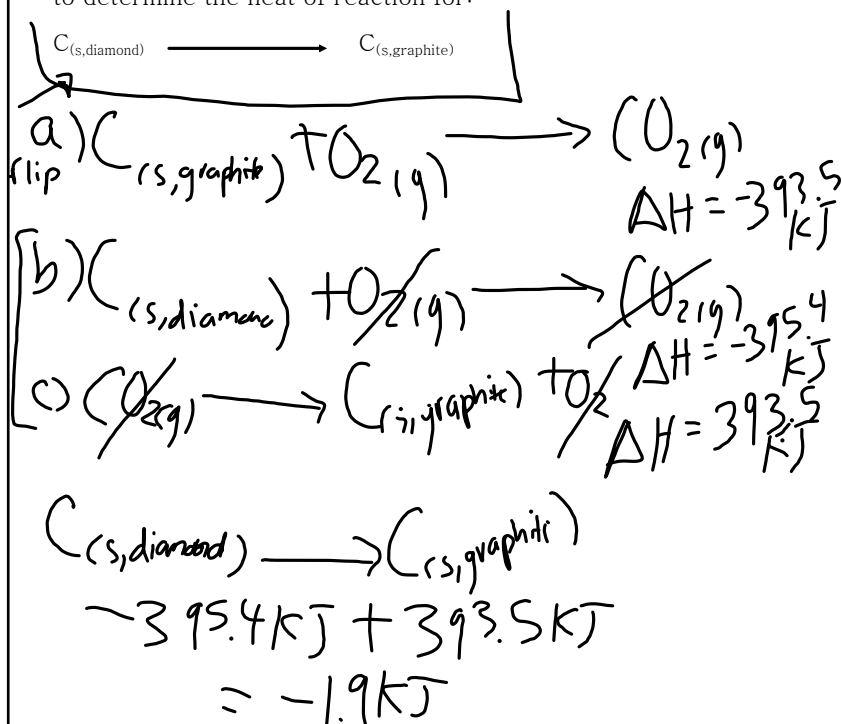 to determine the heat of reaction for:
C(s,diamond) ⟶ C(s,graphite)
a) C(s,graphite) + O2(g) ⟶ CO2(g)
flip
ΔH = -393.5 kJ
b) C(s,diamond) + O2(g) ⟶ CO2(g)
ΔH = -395.4 kJ
c) CO2(g) ⟶ C(s,graphite) + O2
ΔH = 393.5 kJ
C(s,diamond) ⟶ C(s,graphite)
-395.4 kJ + 393.5 kJ
= -1.9 kJ